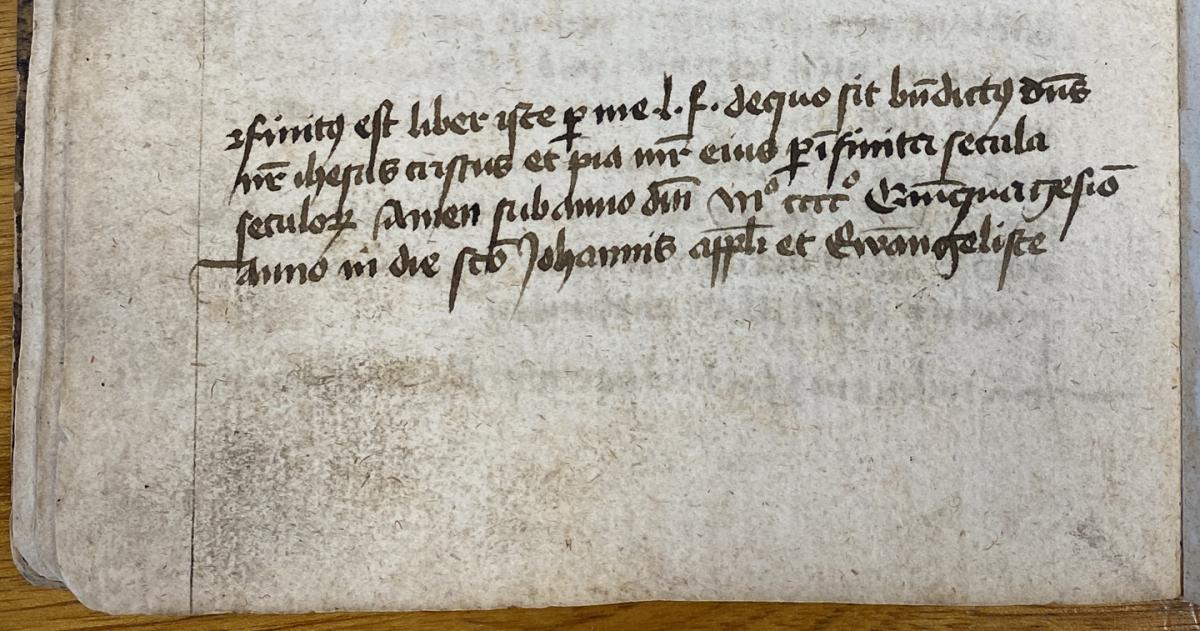 ꝛfinitꝰ est liber iste ꝑ me l. f. dequo sit bn̄dictꝰ dn̄s
nr̄ ihesus cristus et pia mr̄ eius ꝑ īfinita secula
seculoꝝ Amen sub anno dm̄ mº ccccº Quīquagesīo
Anno in die sctī Johannis appl̄i et Ewangeliste